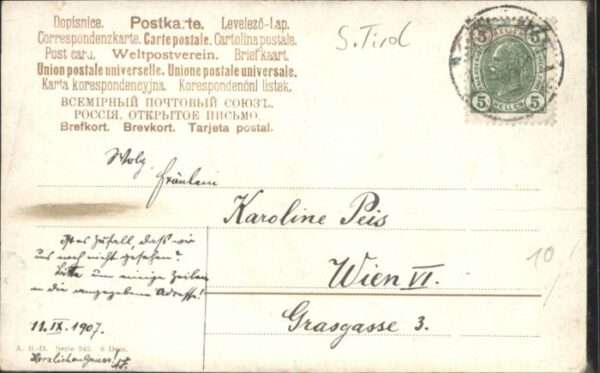 Dopisnice. Postkarte. Levelező-Lap.
Correspondenzkarte. Carte postale. Cartolina postale.
Post card. Weltpostverein. Briefkaart.
Union postale universelle. Unione postale universale.
Karta korespondencyjna. Korespondenční lístek.
ВСЕМІРНЫЙ ПОЧТОВЫЙ СОЮЗЪ.
РОССІЯ. ОТКРЫТОЕ ПИСЬМО.
Brefkort. Brevkort. Tarjeta postal.
S. Tirol
5 5
5 HELLER 5
Wolg. Fräulein
Karoline Peis
Wien VI.
Grasgasse 3.
Ist es Zufall, daß wir
uns noch nicht gesehen?
Bitte um einige Zeilen
an die angegebene Adresse!
11.IX.1907.
A. R.-B. Serie 345. 6 Dess.
Herzlichen Gruss!
10